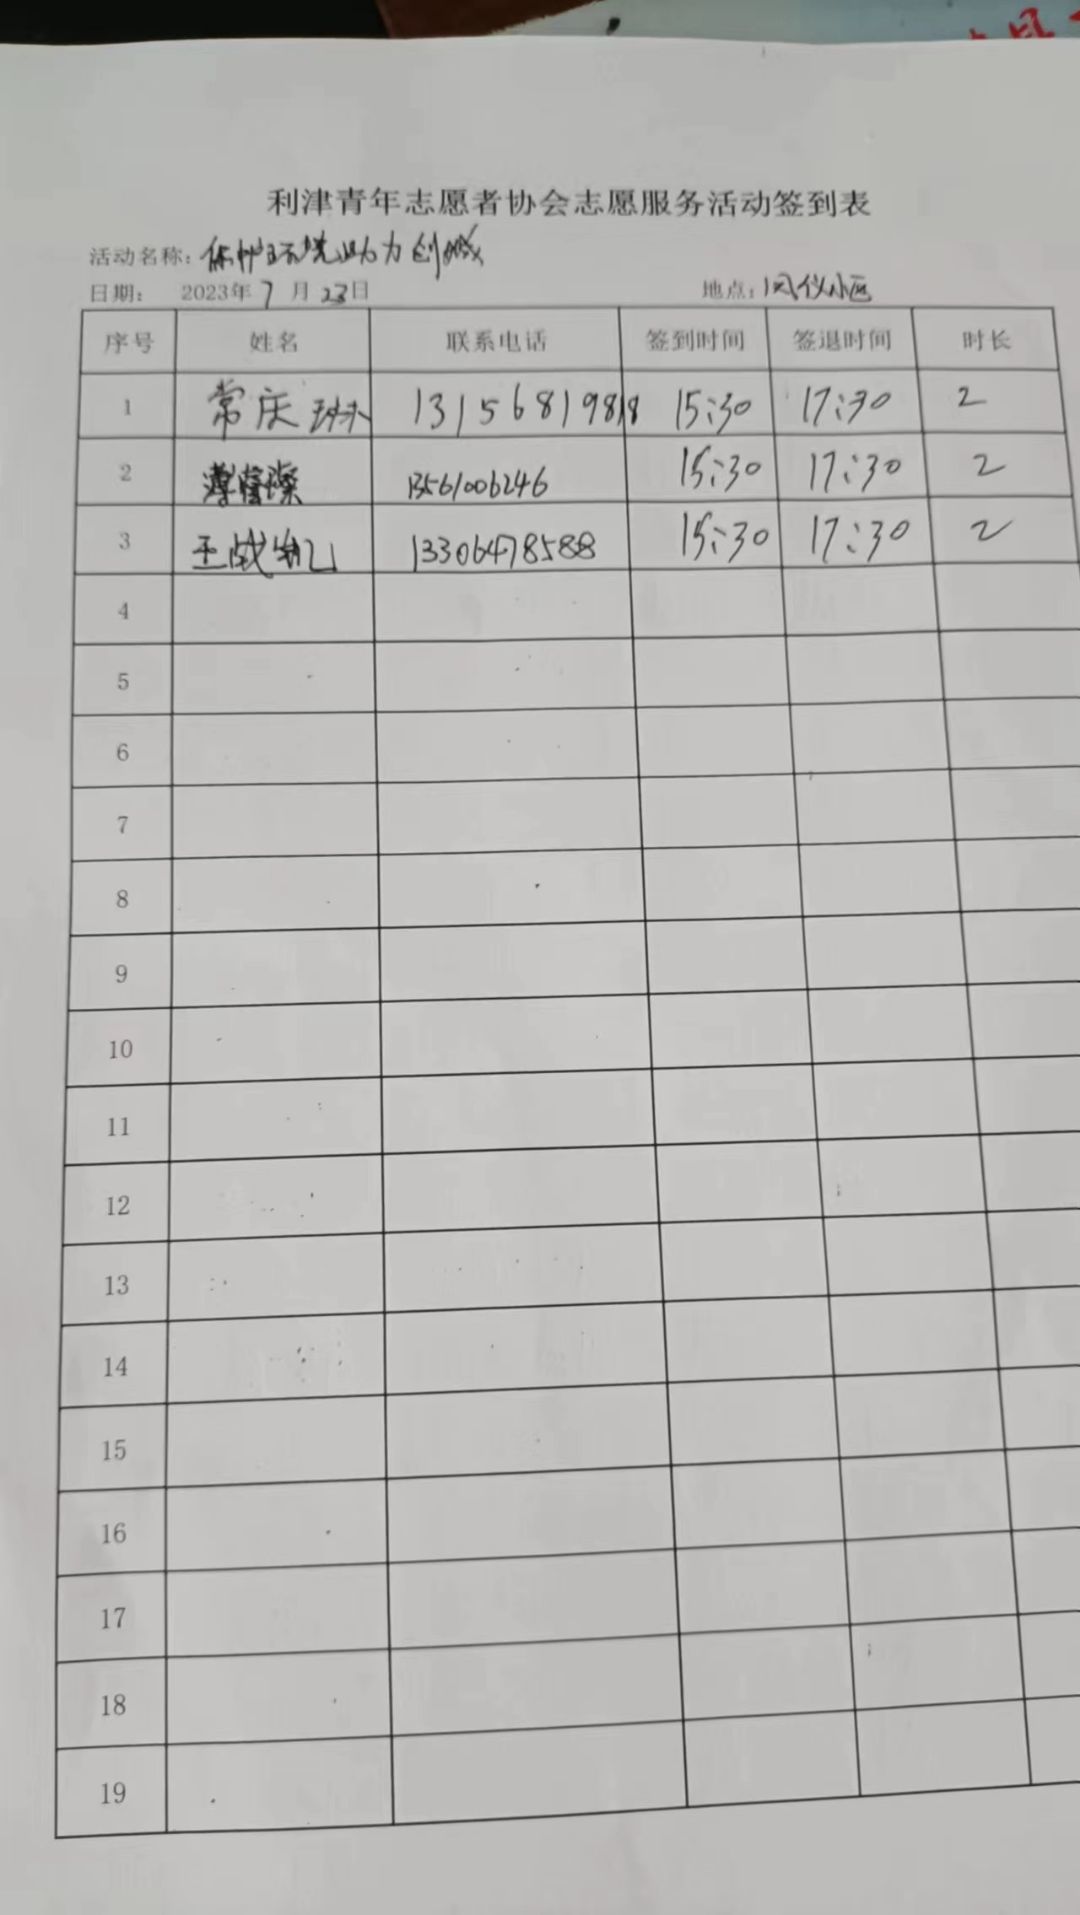 利津青年志愿者协会志愿服务活动签到表
活动名称：保护环境助力创城
日期： 2023年7月23日 地点：凤仪小区
序号 姓名 联系电话 签到时间 签退时间 时长
1 常庆琳 13156819818 15:30 17:30 2
2 13561006246 15:30 17:30 2
3 王战凯 13306478588 15:30 17:30 2
4
5
6
7
8
9
10
11
12
13
14
15
16
17
18
19